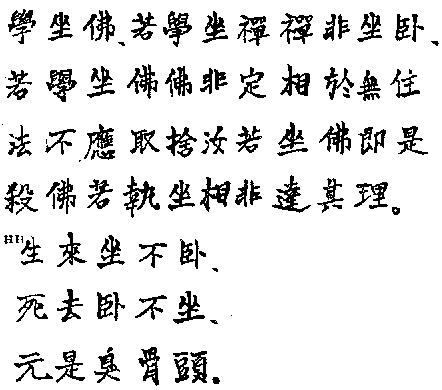 學坐佛、若學坐禪禪非坐卧、
若學坐佛佛非定相於無住
法不應取捨汝若坐佛即是
殺佛若執坐相非達其理。
生來坐不卧、
死去卧不坐、
元是臭骨頭。